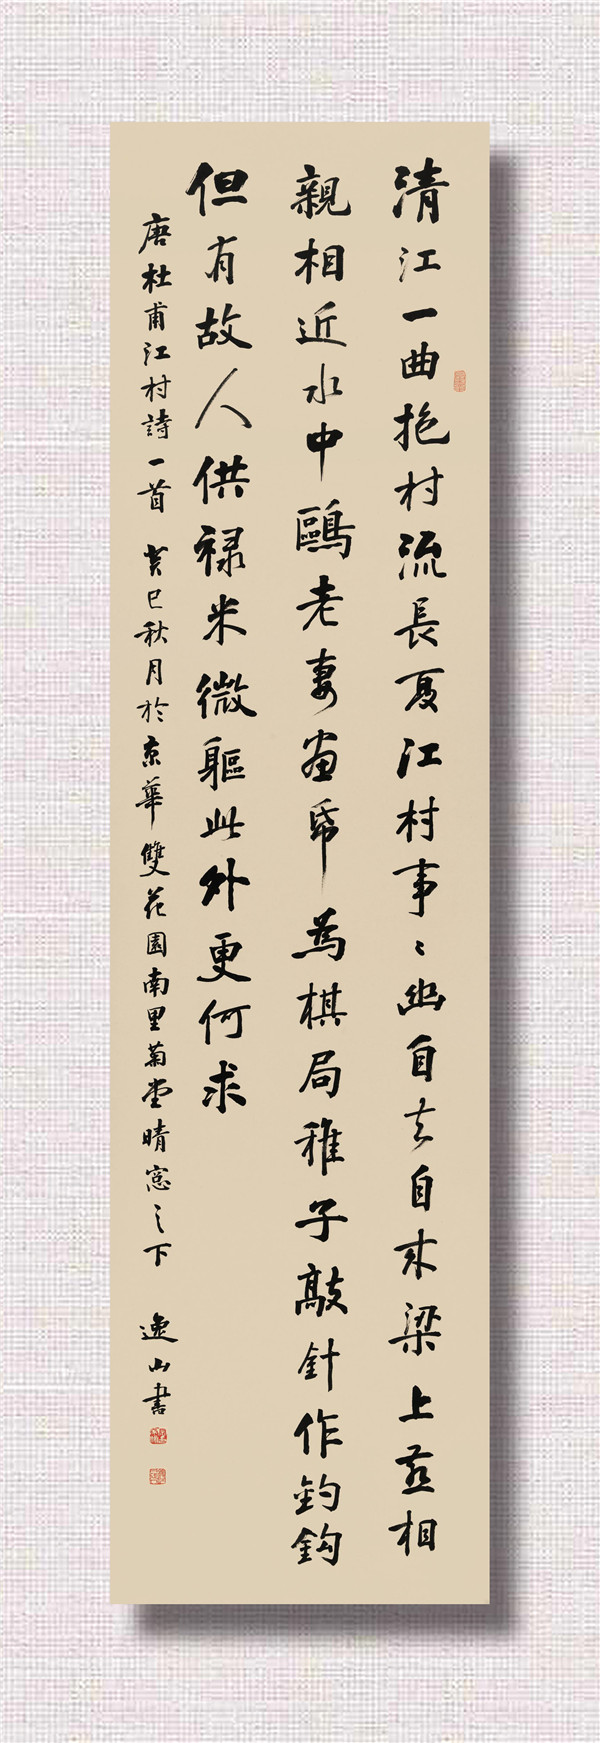 清江一曲抱村流長夏江村事〻幽自去自来梁上燕相
親相近水中鷗老妻畫帋為棋局稚子敲針作釣鈎
但有故人供禄米微軀此外更何求
唐杜甫江村詩一首 癸巳秋月於京華雙花園南里菊堂晴窓之下 逸山書